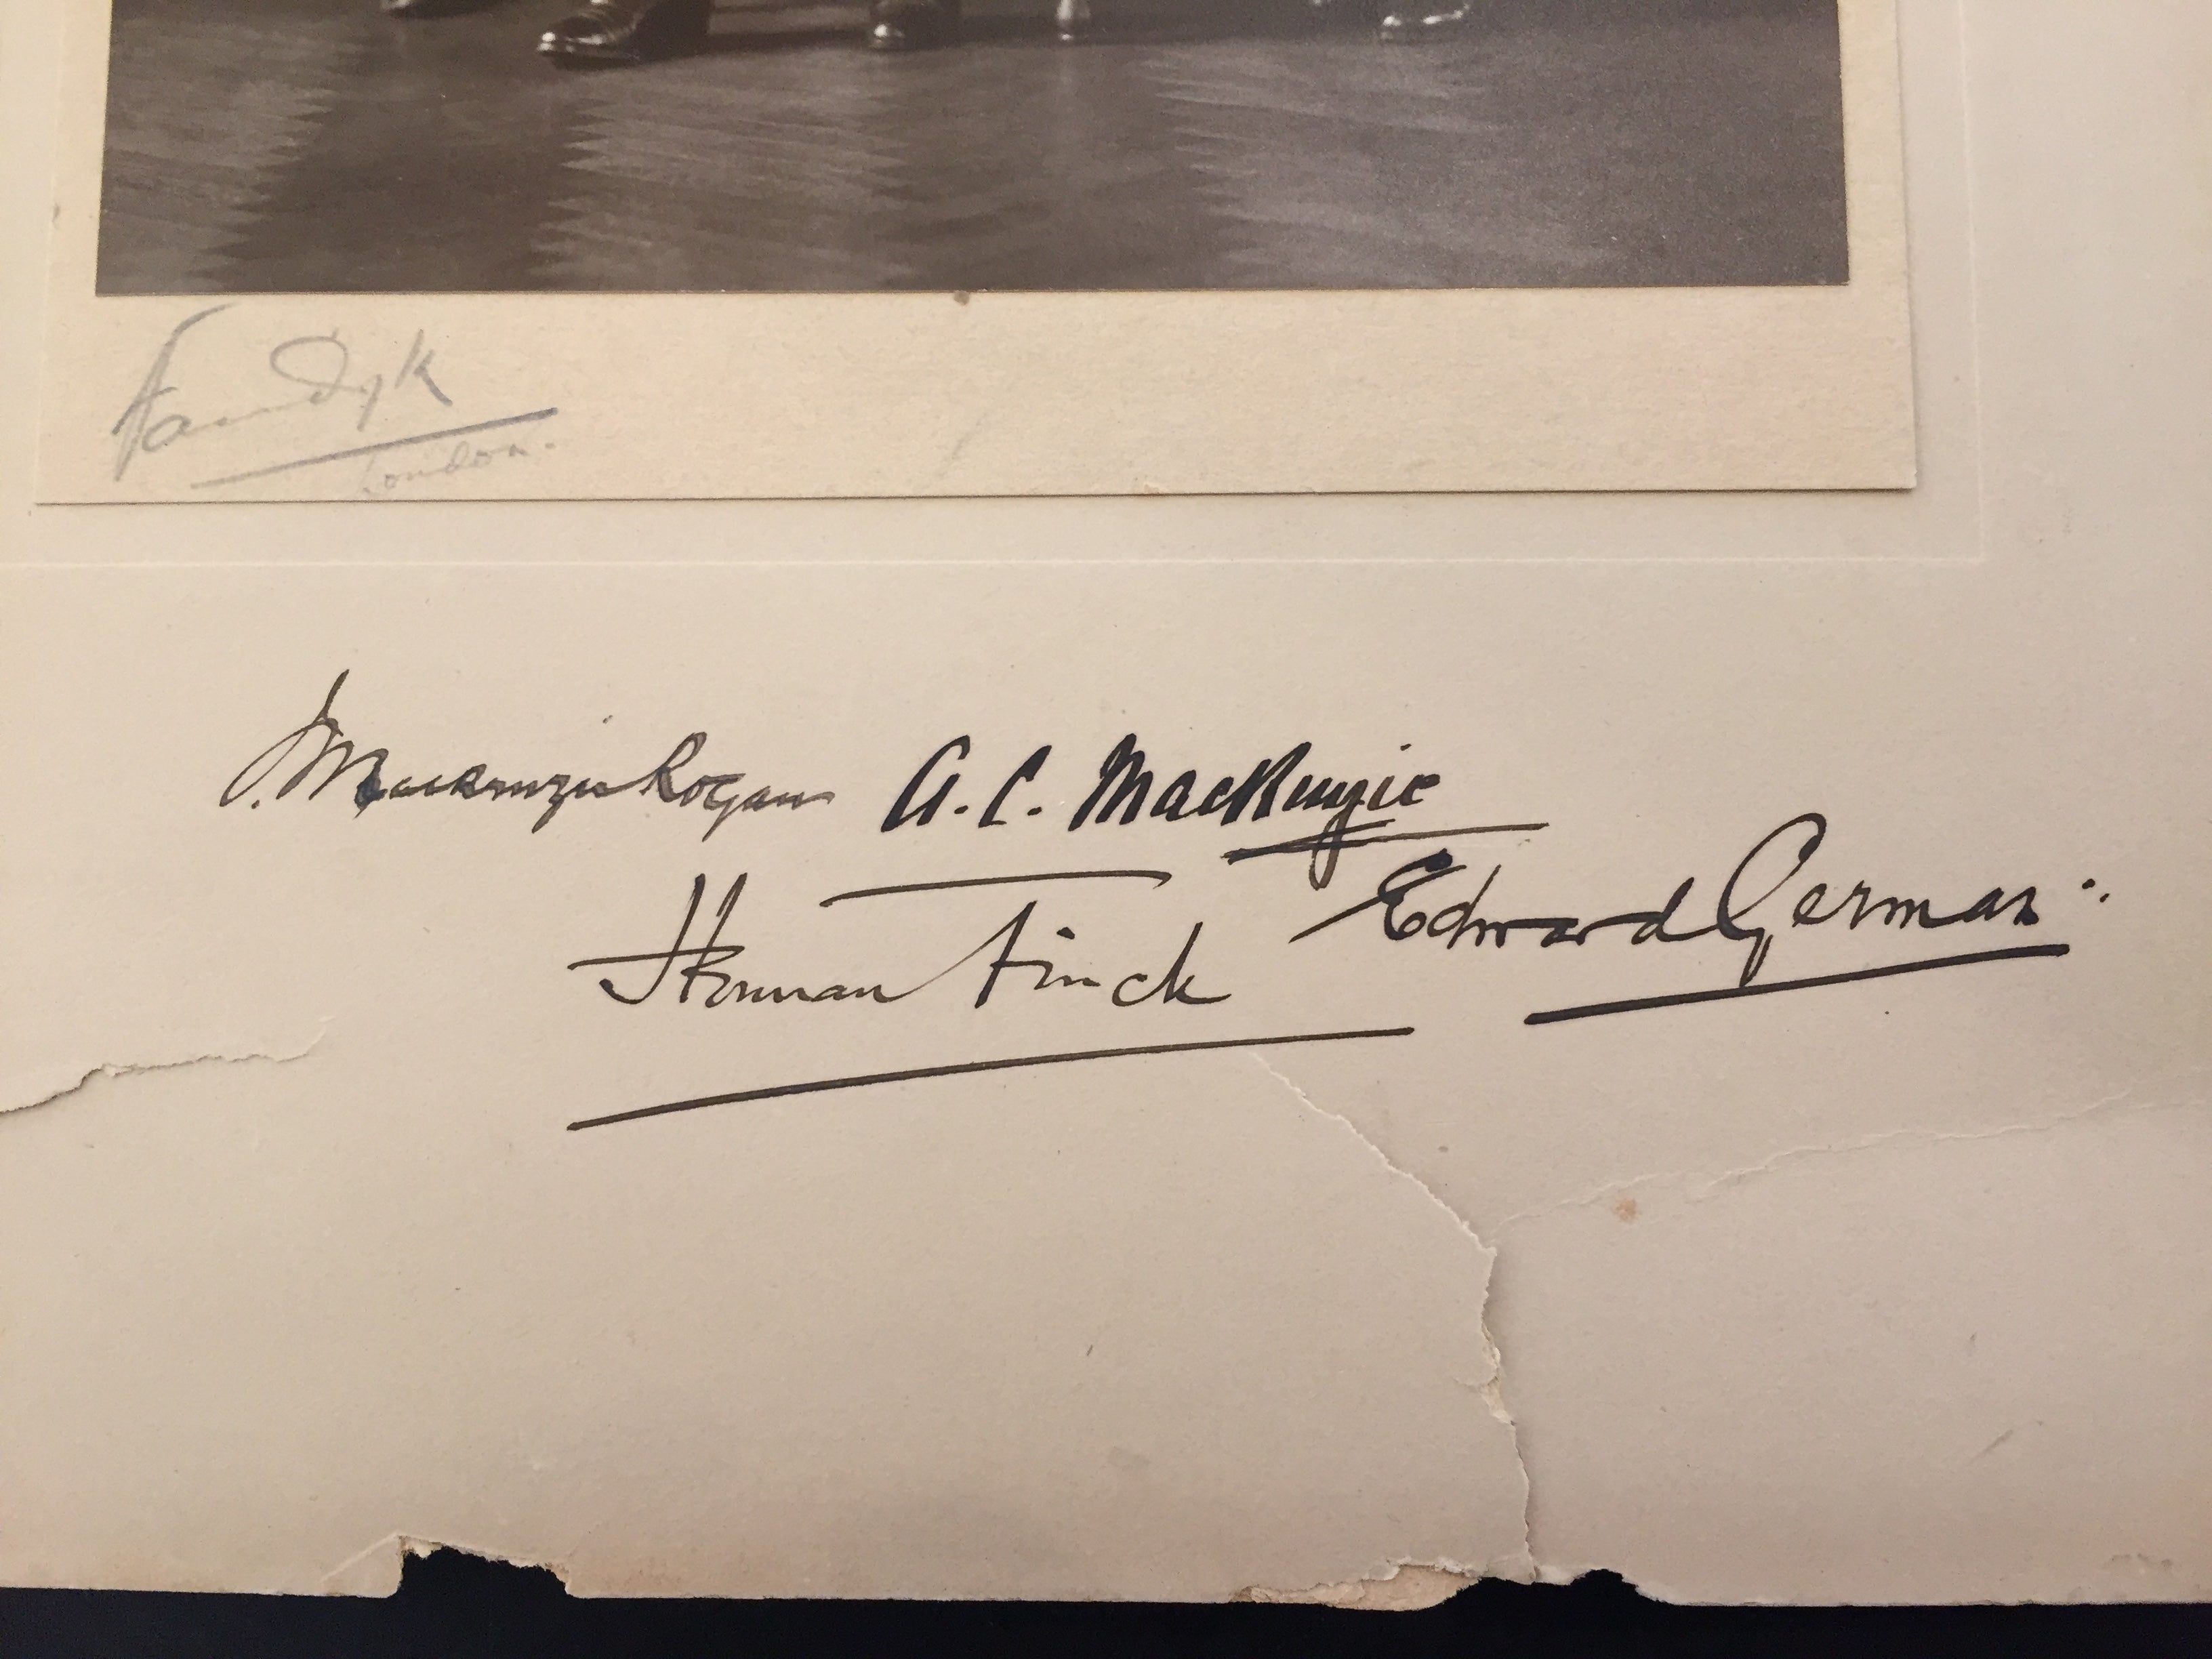 Van Dyk
London.
J. Mackenzie Rogan A. C. Mackenzie
Herman Finck Edward German